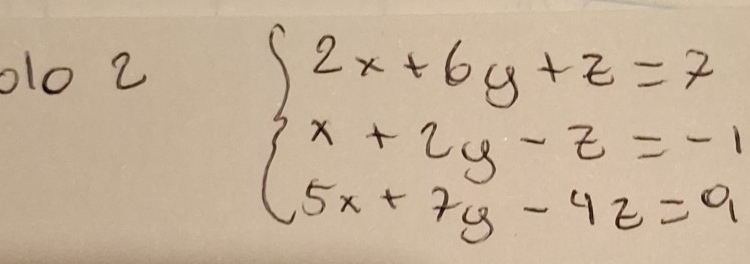 olo 2
2x + 6y + z = 7
x + 2y - z = -1
5x + 7y - 4z = 9